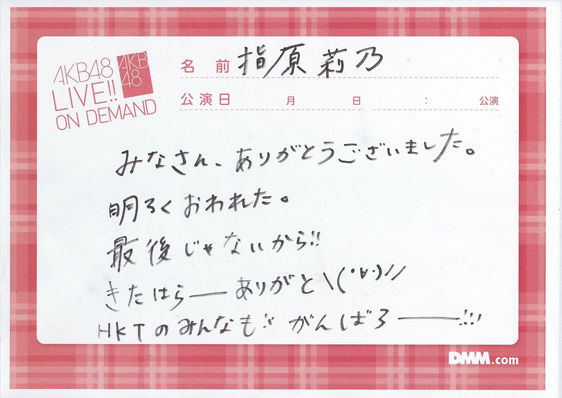 AKB48
LIVE!!
ON DEMAND
AKB
48
名前 指原莉乃
公演日 月 日 : 公演
みなさん、ありがとうございました。
明るくおわれた。
最後じゃないから!!
きたはらーありがと\(・∀・)//
HKTのみんなも!! がんばろー!!!
DMM.com